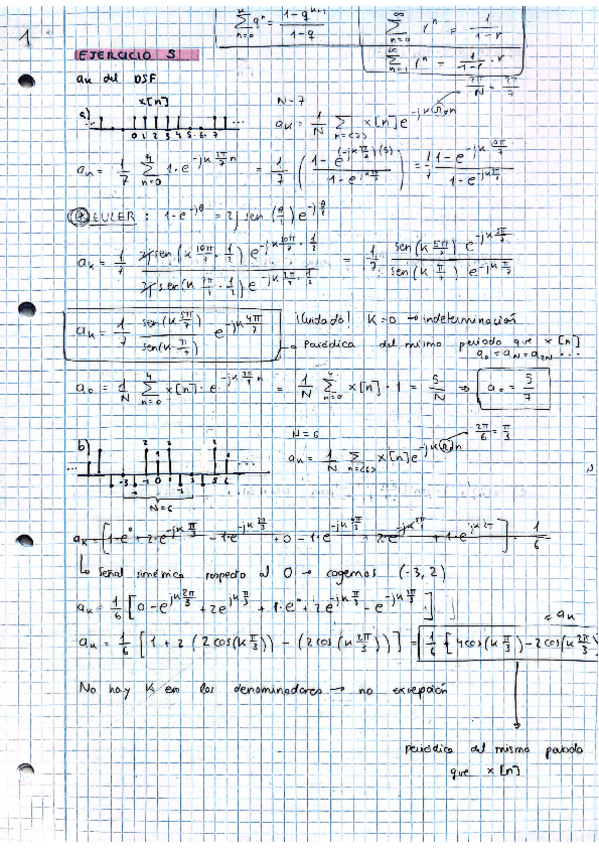 1
\sum_{n=0}^{k} q^n = \frac{1-q^{k+1}}{1-q}
\sum_{n=0}^{\infty} r^n = \frac{1}{1-r}
\sum_{n=1}^{\infty} r^n = \frac{1}{1-r} \cdot r
EJERCICIO 5
ak del DSF
a) x[n]
0 1 2 3 4 5 6 7
N=7
a_k = \frac{1}{N} \sum_{n=<7>} x[n] e^{-jkΩ_0n}
\frac{2π}{N} = \frac{2π}{7}
a_k = \frac{1}{7} \sum_{n=0}^{4} 1·e^{-jk\frac{2π}{7}n} = \frac{1}{7} · \left( \frac{1-e^{(-jk\frac{2π}{7})(5)}}{1-e^{-jk\frac{2π}{7}}} \right) = \frac{1}{7} \frac{1-e^{-jk\frac{10π}{7}}}{1-e^{-jk\frac{2π}{7}}}
EULER : 1-e^{-jθ} = 2j sen(\frac{θ}{2}) e^{-j\frac{θ}{2}}
a_k = \frac{1}{7} \frac{2j sen(k\frac{10π}{7}·\frac{1}{2}) e^{-jk\frac{10π}{7}·\frac{1}{2}}}{2j sen(k\frac{2π}{7}·\frac{1}{2}) e^{-jk\frac{2π}{7}·\frac{1}{2}}} = \frac{1}{7} · \frac{sen(k\frac{5π}{7}) e^{-jk\frac{5π}{7}}}{sen(k\frac{π}{7}) e^{-jk\frac{π}{7}}}
a_k = \frac{1}{7} \frac{sen(k\frac{5π}{7})}{sen(k\frac{π}{7})} e^{-jk\frac{4π}{7}}
¡Cuidado! K=0 → indeterminación
Periódica del mismo periodo que x[n]
a_0 = a_N = a_{2N} ...
a_0 = \frac{1}{N} \sum_{n=0}^{4} x[n]·e^{-jk\frac{2π}{7}n} = \frac{1}{N} \sum_{n=0}^{4} x[n]·1 = \frac{5}{N} ⇒ a_0 = \frac{5}{7}
b)
N=6
N=6
a_k = \frac{1}{N} \sum_{n=<6>} x[n] e^{-jkΩ_0n}
\frac{2π}{6} = \frac{π}{3}
Señal simétrica respecto al 0 → cogemos (-3, 2)
a_k = \frac{1}{6} [0 - e^{jk\frac{2π}{3}} + 2e^{jk\frac{π}{3}} + 1·e^{0} + 2e^{-jk\frac{π}{3}} - e^{-jk\frac{2π}{3}}]
a_k = \frac{1}{6} [1 + 2(2cos(k\frac{π}{3})) - (2cos(k\frac{2π}{3}))] =
= a_k
No hay K en los denominadores → no excepción
periódica del mismo periodo
que x[n]